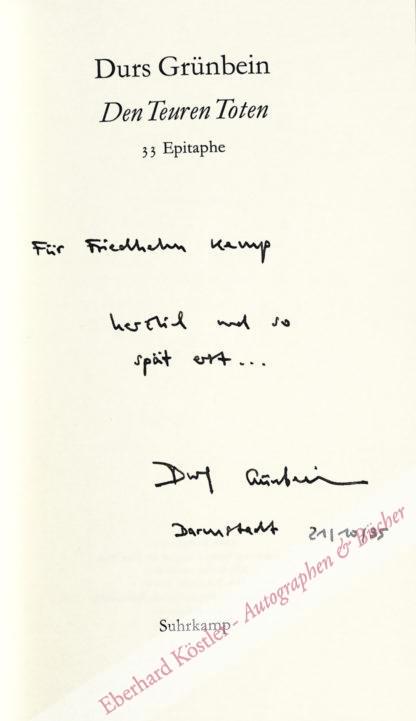 Durs Grünbein
Den Teuren Toten
33 Epitaphe
Für Friedhelm Kemp
herzlich und so
spät erst...
Durs Grünbein
Darmstadt 21/10/95
Suhrkamp
Eberhard Köstler - Autographen & Bücher